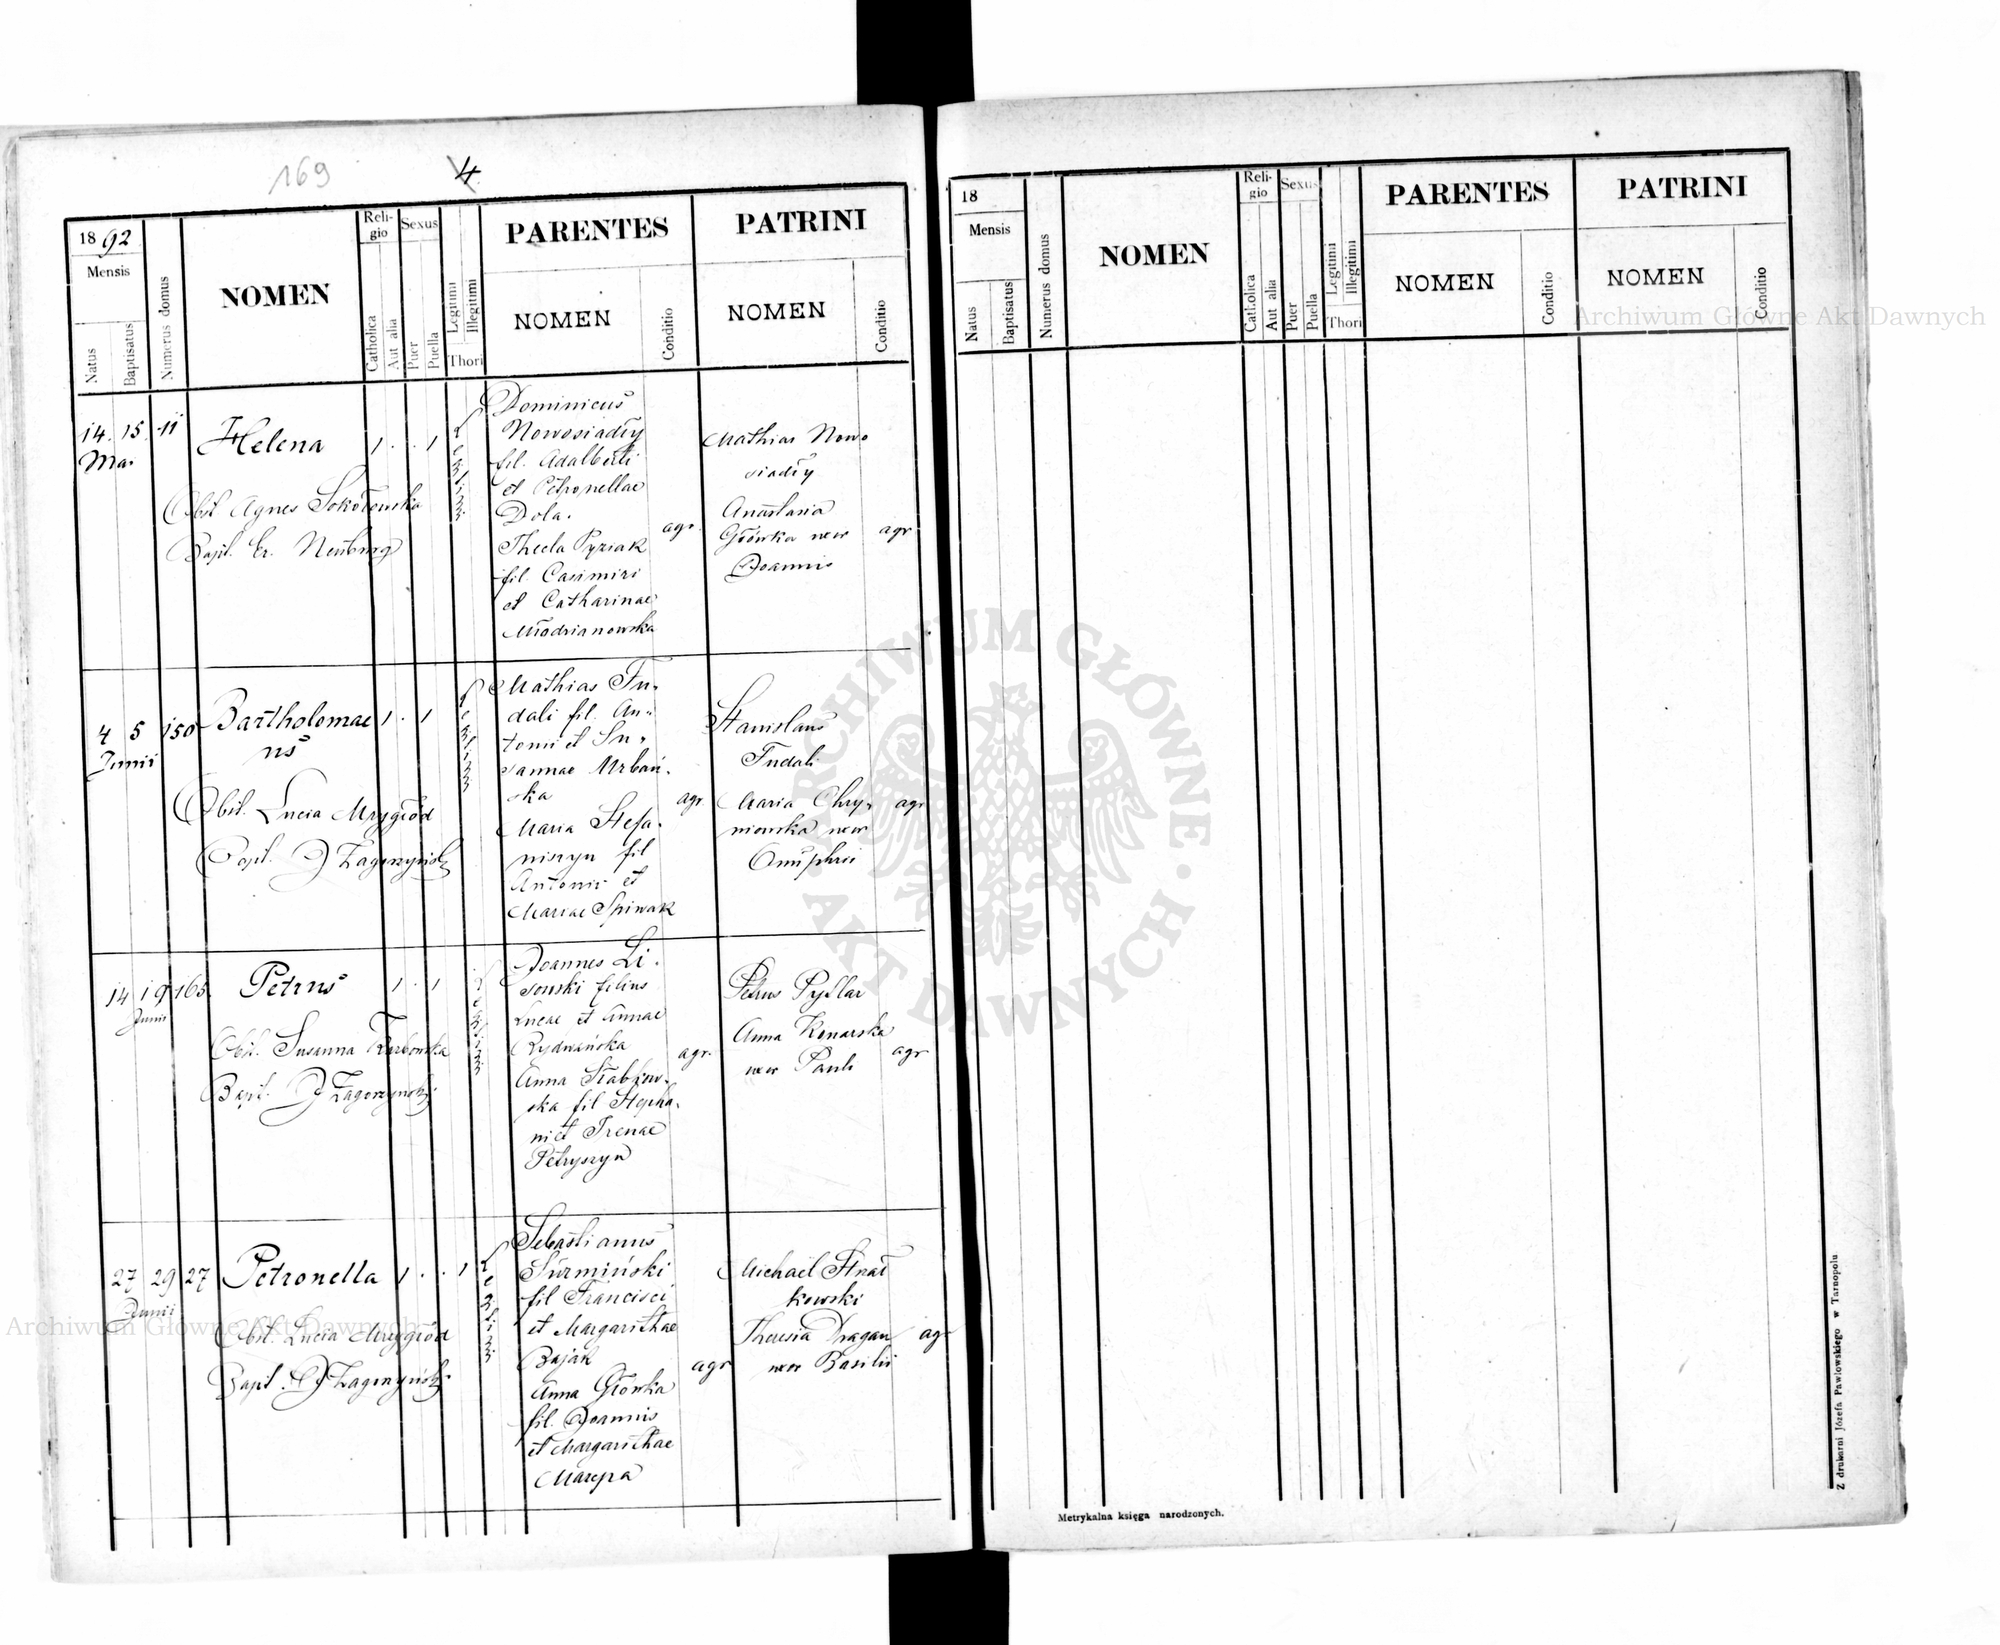 169
4
1892
Mensis
Natus
Baptisatus
Numerus domus
NOMEN
Religio
Catholica
Aut alia
Sexus
Puer
Puella
Legitimi
Illegitimi
Thori
PARENTES
NOMEN
Conditio
PATRINI
NOMEN
Conditio
14. 15. 11
Mai
Helena
1 . . 1
Obst. Agnes Sokołowska
Bapt. Er. Neuburg
Dominicus
Nowosiadły
fil. Adalberti
et Petronellae
Dola.
Thecla Pyziak
fil. Casimiri
et Catharinae
Młodzianowska
agr.
Mathias Nowo
siadły
Anastasia
Główka uxor
Joannis
agr
4 5 150
Junii
Bartholomae
us
1 . 1
Obst. Lucia Mrygłód
Bapt. J Zagorzyński
Mathias Fu-
dali fil. An-
tonii et Su-
sannae Urbań-
ska
Maria Stefa-
niszyn fil
Antonii et
Mariae Spiwak
agr
Stanislaus
Fudali
Maria Chry-
niowska uxor
Onuphrii
agr
14 19 165.
Junii
Petrus
1 . 1
Obst. Susanna Karbowska
Bapt. J Zagorzyński
Joannes Li-
sowski filius
Lucae et Annae
Rydwańska
Anna Słabkow-
ska fil Stepha-
ni et Irenae
Petryszyn
agr.
Petrus Pytlar
Anna Konarska
uxor Pauli
agr
27 29 27
Junii
Petronella
1 . . 1
Obst. Lucia Mrygłód
Bapt. J Zagorzyński
Sebastianus
Surmiński
fil Francisci
et Margarithae
Bajak
Anna Główka
fil. Joannis
et Margarithae
Mazepa
agr
Michael Hnat
kowski
Theresia Dragan
uxor Basilii
agr
18
Mensis
Natus
Baptisatus
Numerus domus
NOMEN
Religio
Catholica
Aut alia
Sexus
Puer
Puella
Legitimi
Illegitimi
Thori
PARENTES
NOMEN
Conditio
PATRINI
NOMEN
Conditio
Metrykalna księga narodzonych.
Z drukarni Józefa Pawłowskiego w Tarnopolu
Archiwum Główne Akt Dawnych
Archiwum Główne Akt Dawnych
ARCHIWUM GŁÓWNE · AKT DAWNYCH ·